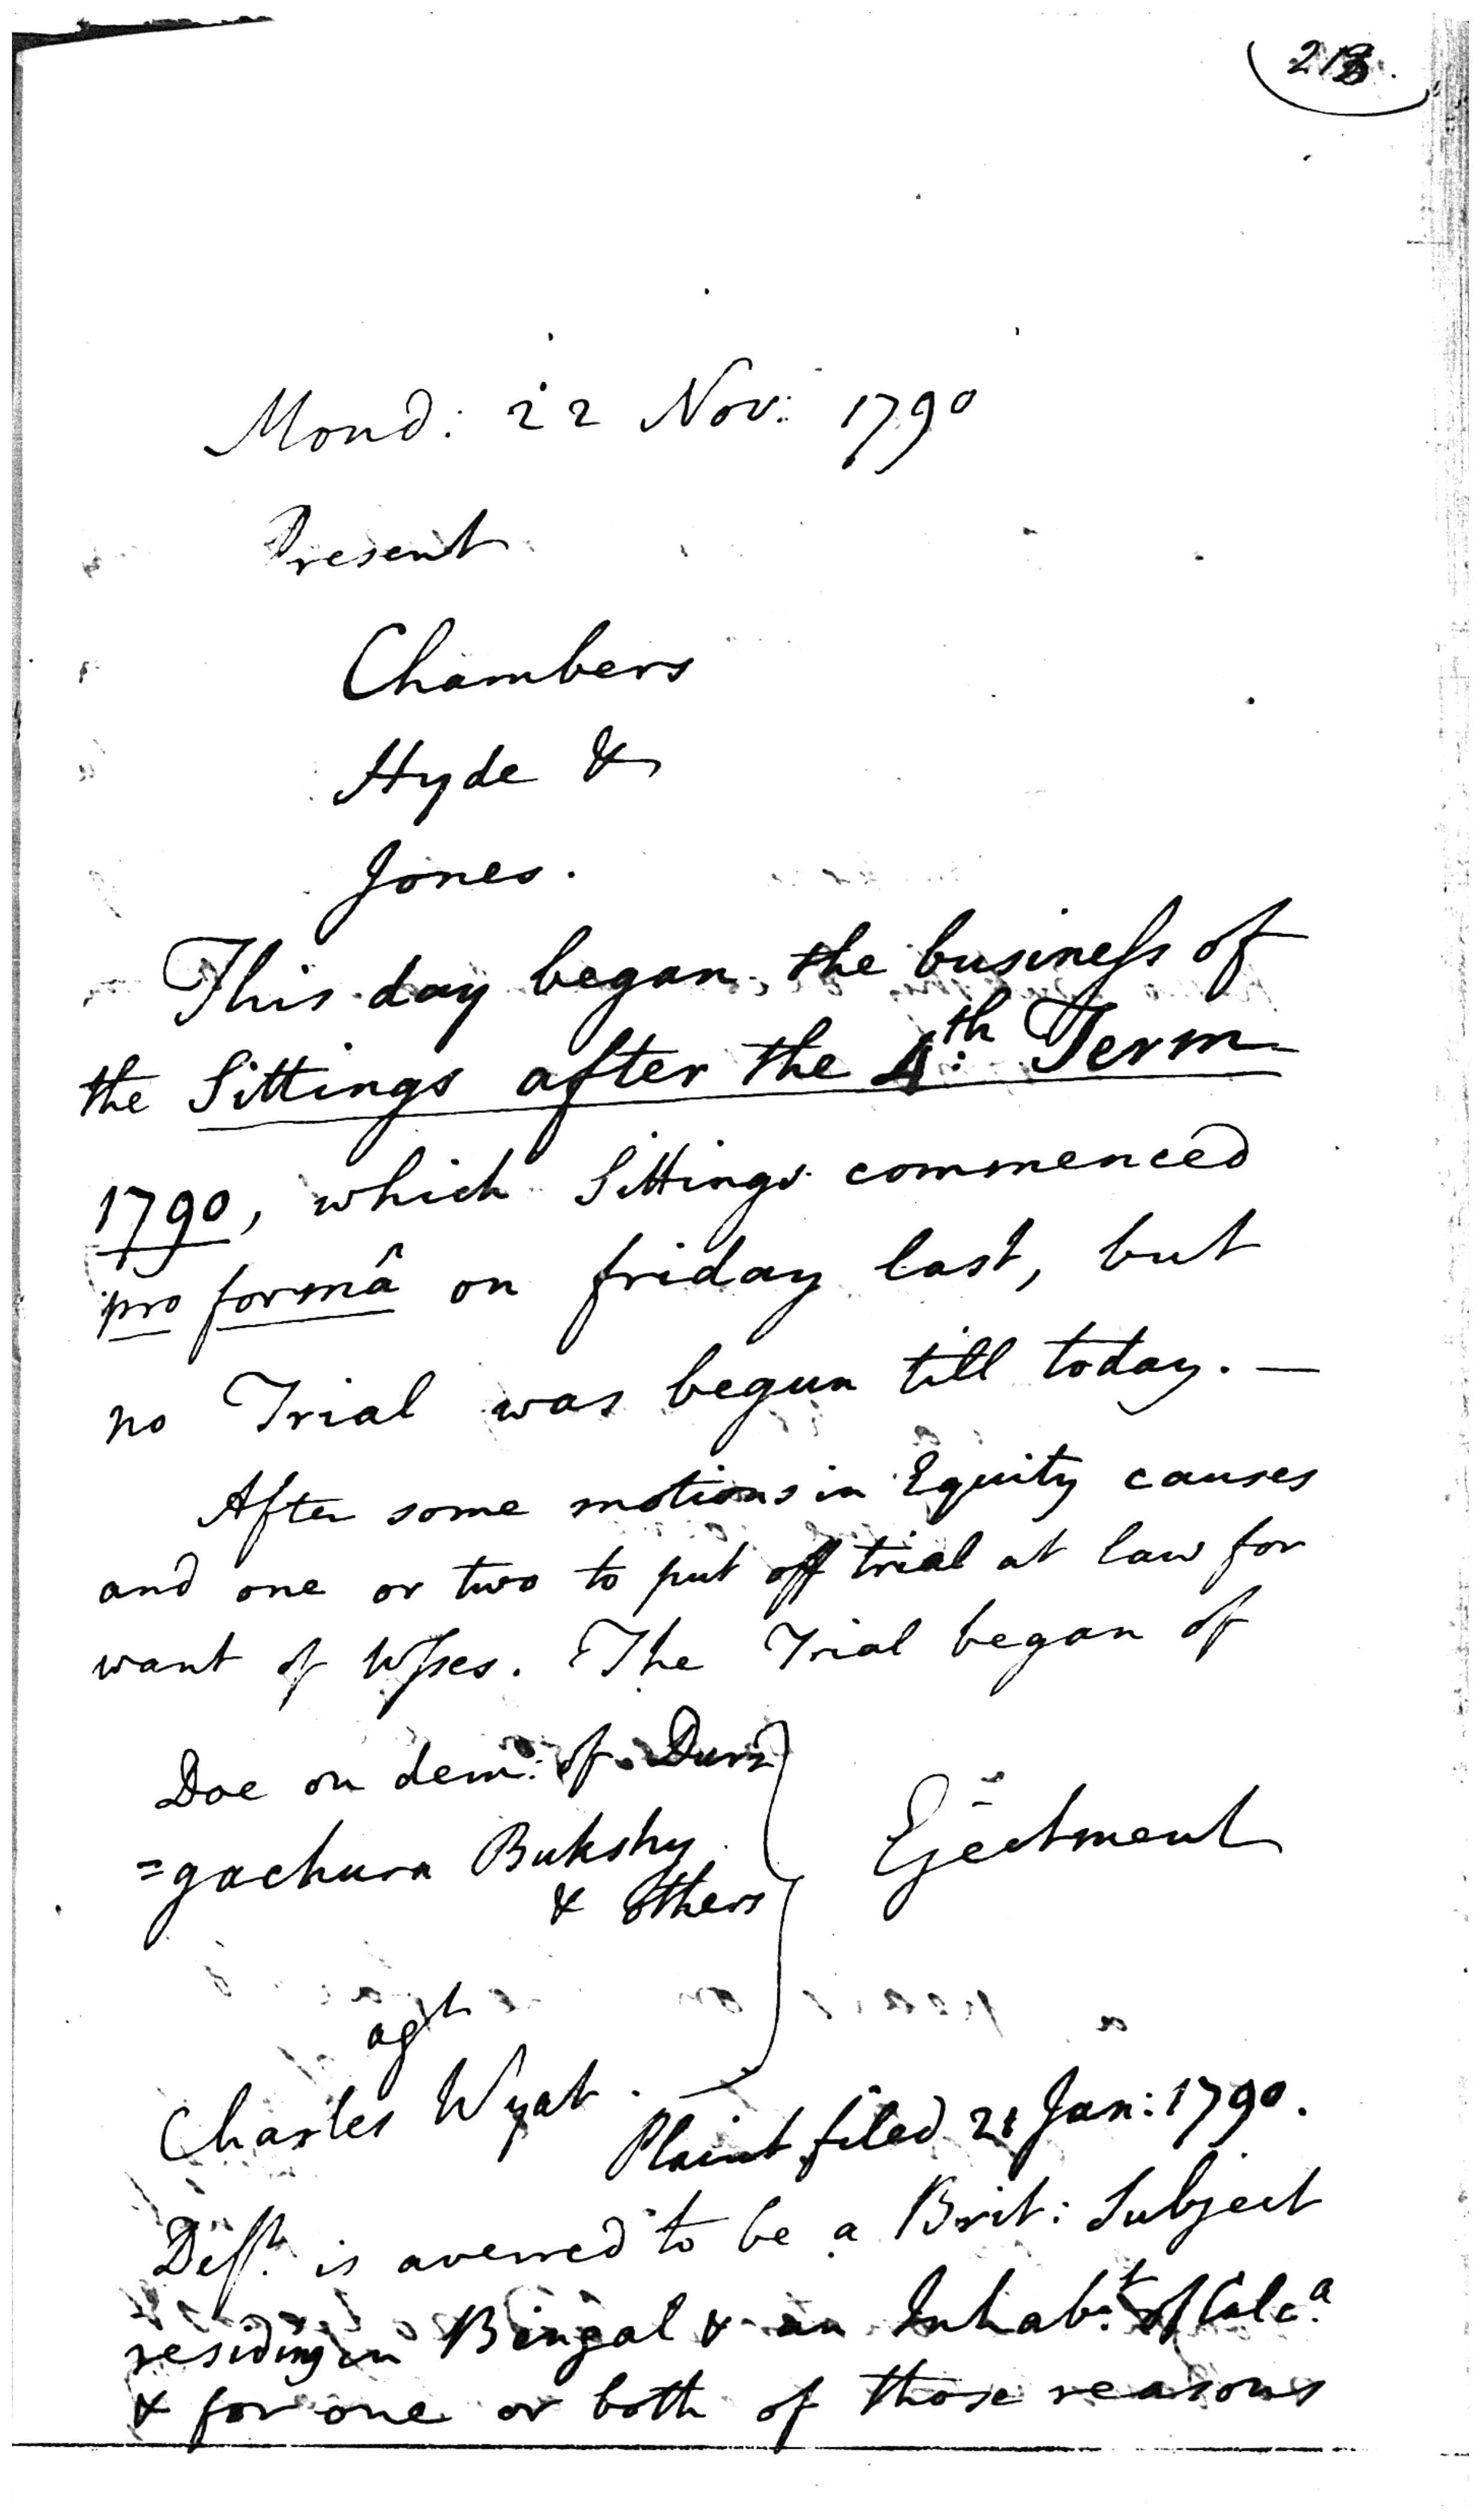 Mond: 22 Nov: 1790
Present
Chambers
Hyde &
Jones.
This day began, the business of
the Sittings after the 4th: Term
1790, which Sittings commenced
pro formâ on friday last, but
no Trial was begun till today. —
After some motions in Equity causes
and one or two to put off trial at law for
want of Wsses. The Trial began of
Doe on dem: of Dur
=gachurn Bukshy
& others
Ejectment
agt
Charles Wyat.
Plaint filed 21 Jan: 1790.
Deft. is averred to be a Brit: Subject
residing in Bengal & an Inhabt: of Calca.
& for one or both of those reasons